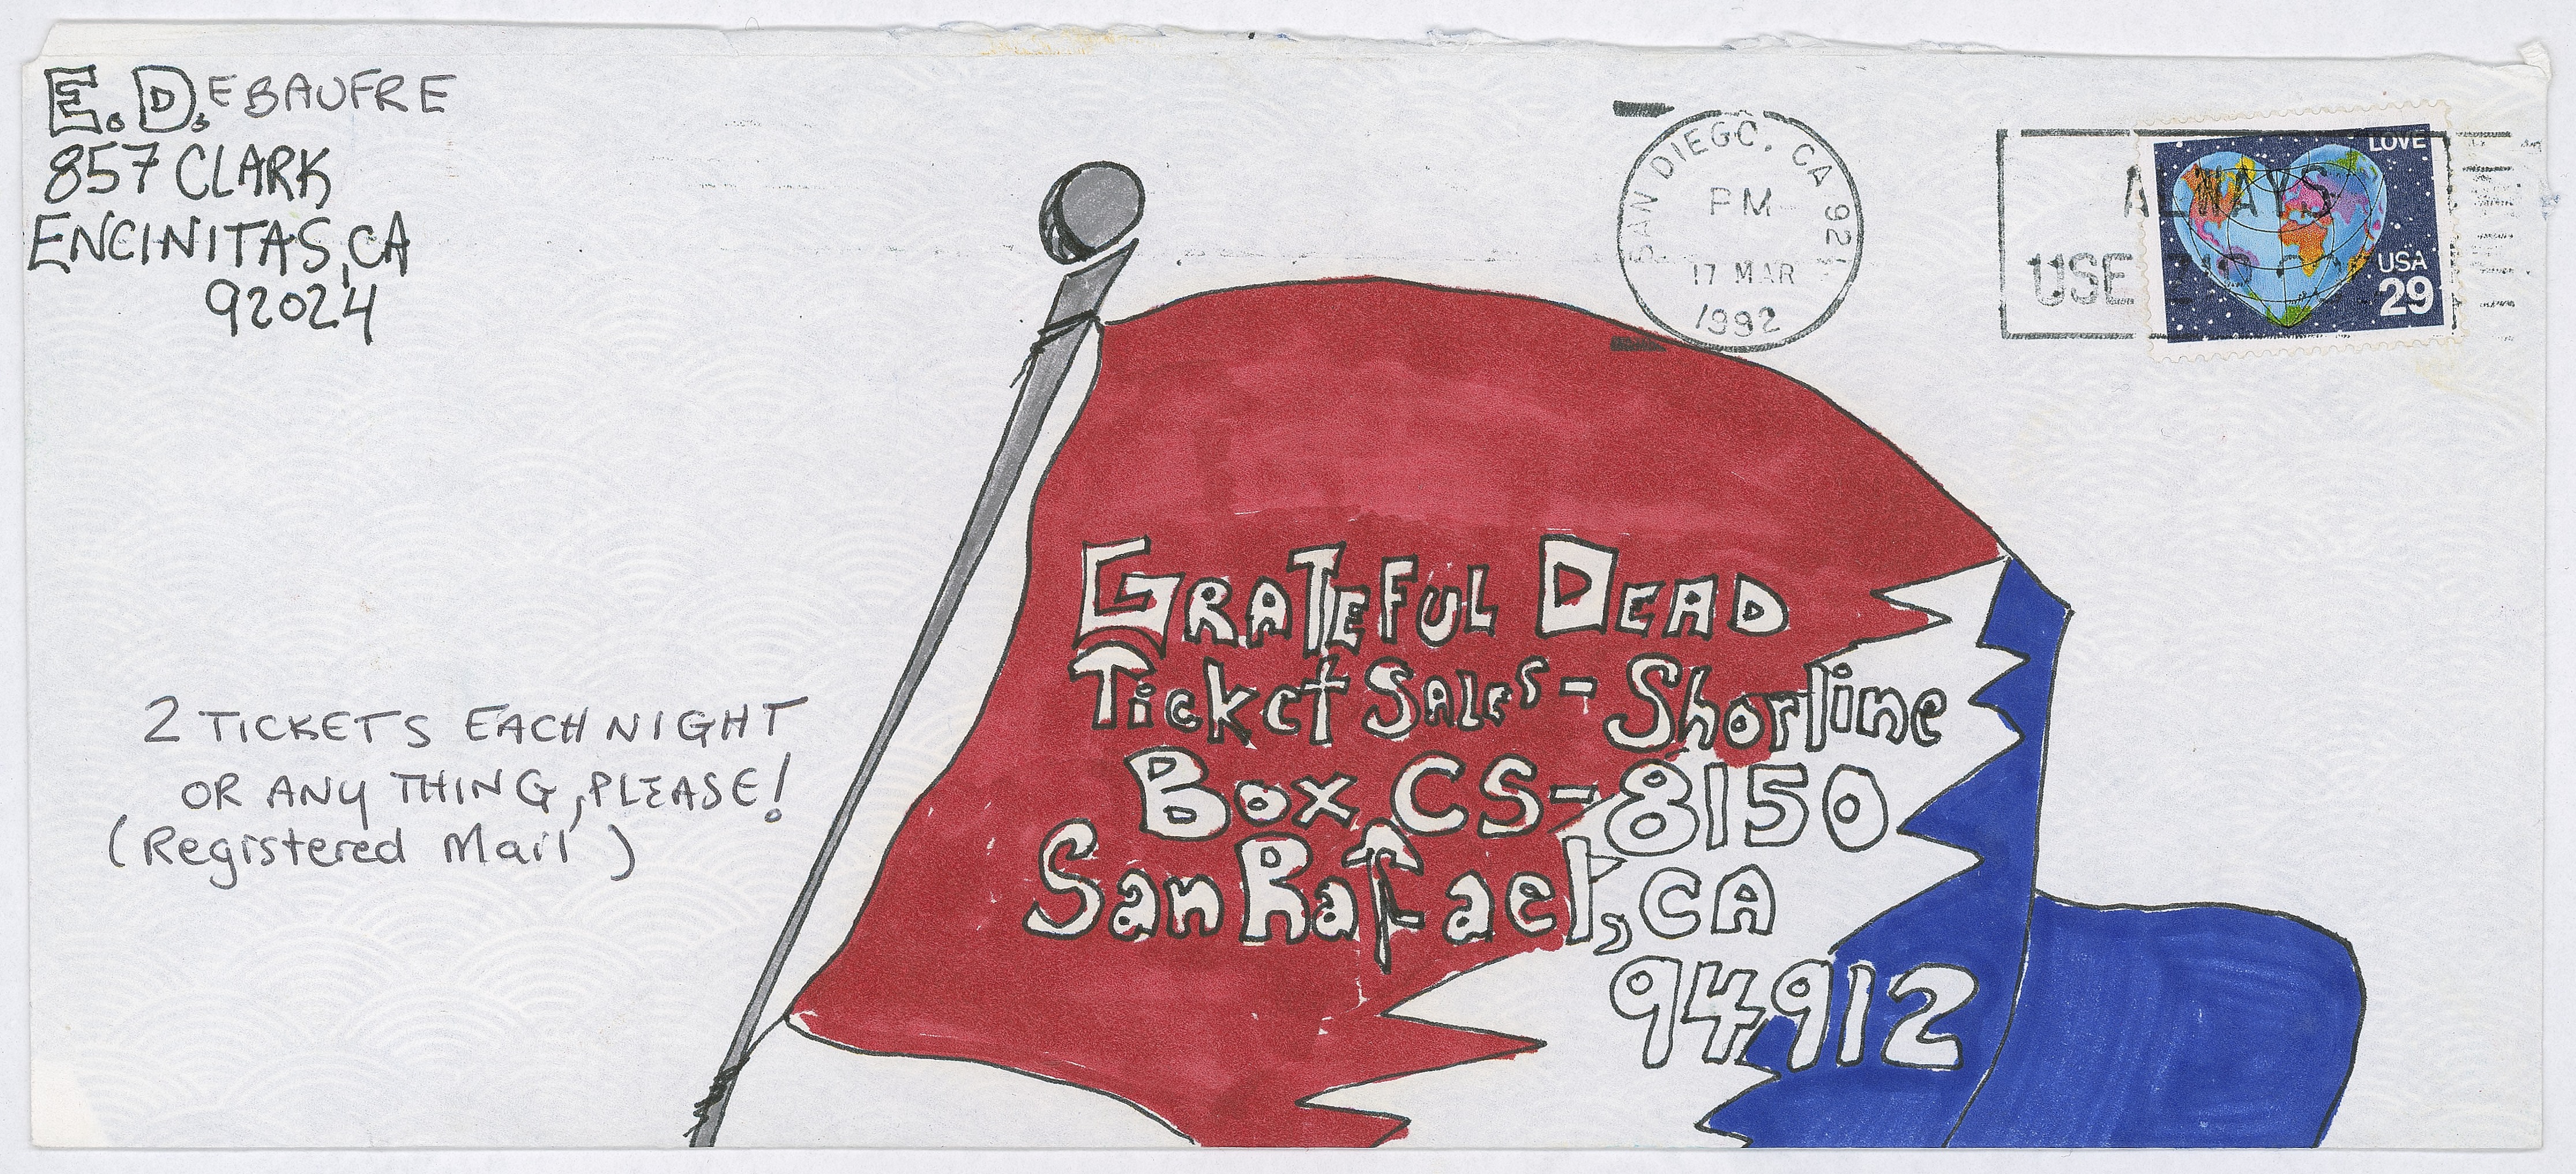 E. D.EBAUFRE
857 CLARK
ENCINITAS, CA
92024
SAN DIEGO, CA 921
PM
17 MAR
1992
ALWAYS
USE ZIP CO
LOVE
USA
29
2 TICKETS EACH NIGHT
OR ANY THING, PLEASE!
(Registered Mail)
GRATEFUL DEAD
Ticket SALES - Shorline
Box CS-8150
San Rafael, CA
94912